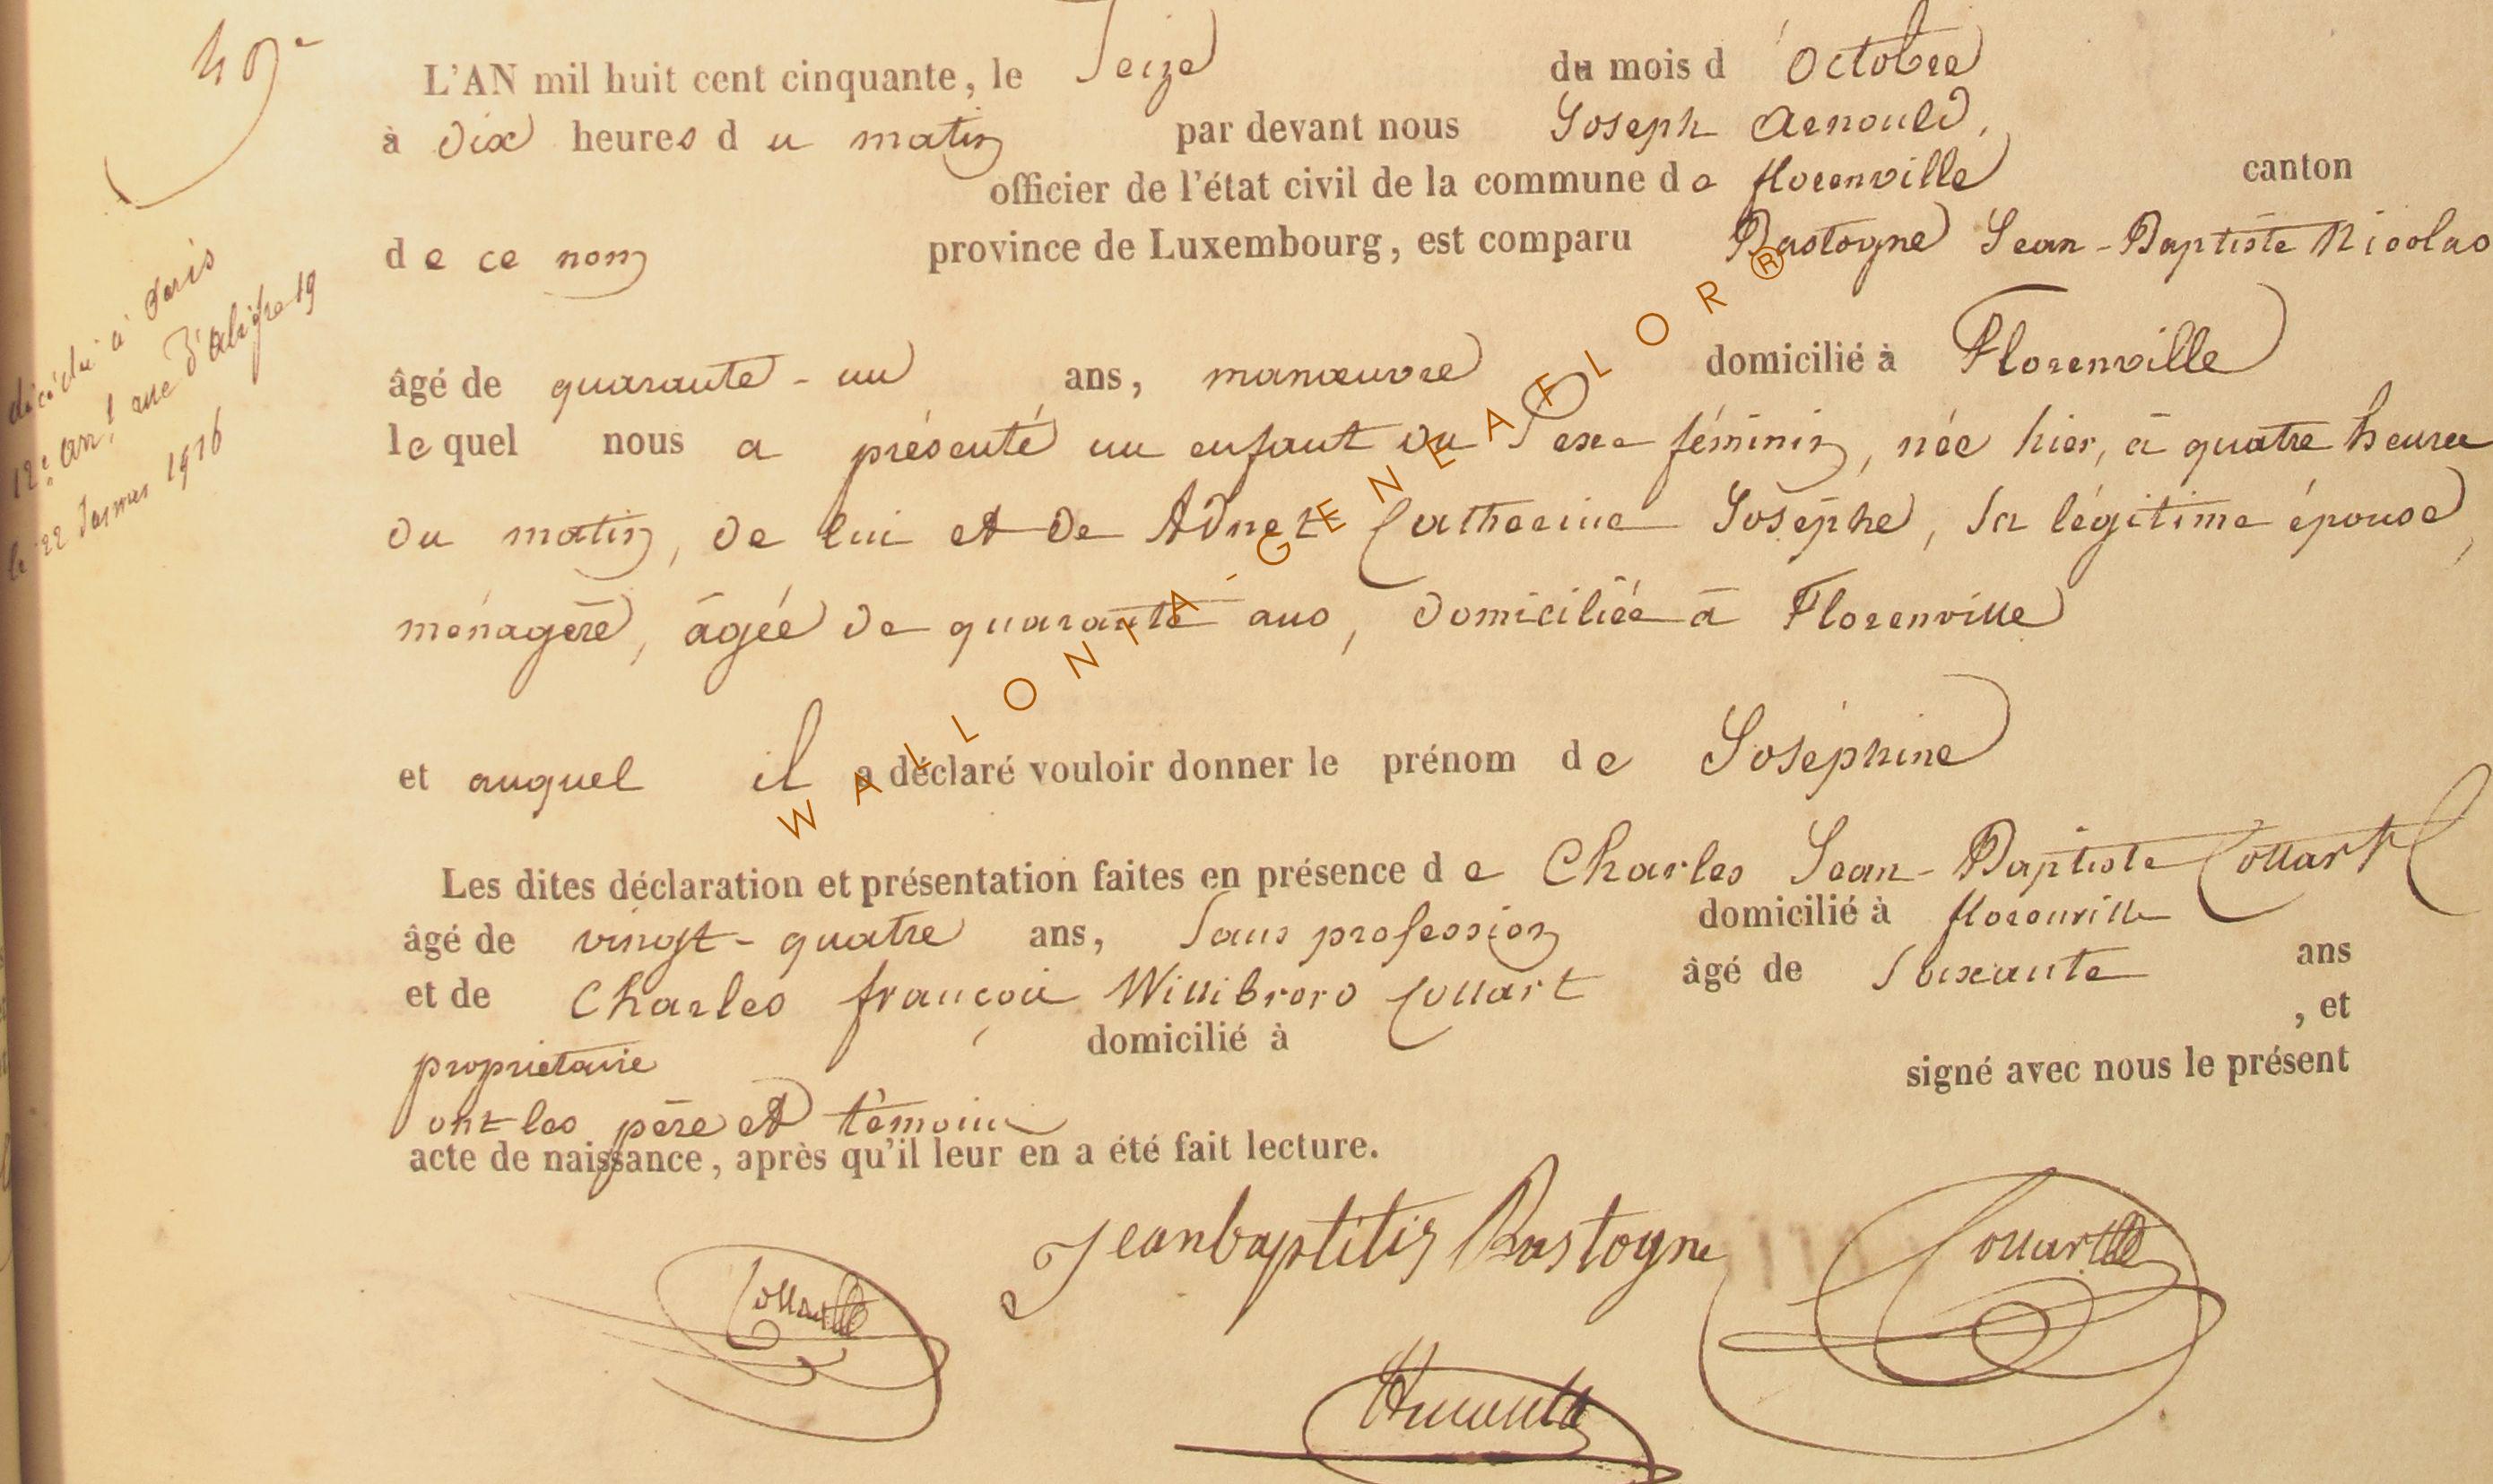 49e
L'AN mil huit cent cinquante, le Seize du mois d'Octobre
à dix heures du matin par devant nous Joseph Arnould,
officier de l'état civil de la commune de florenville canton
de ce nom province de Luxembourg, est comparu Bastogne Jean-Baptiste Nicolas
âgé de quarante-un ans, manœuvre domicilié à Florenville
lequel nous a présenté un enfant du Sexe féminin, née hier, à quatre heures
du matin, de lui et de Adnet Catherine Joséphe, Sa légitime épouse,
ménagère, âgée de quarante ans, domiciliée à Florenville
et auquel il a déclaré vouloir donner le prénom de Joséphine
Les dites déclaration et présentation faites en présence de Charles Jean-Baptiste Collart
âgé de vingt-quatre ans, Sans profession domicilié à florenville
et de Charles françois Willibrord Collart âgé de Soixante ans
propriétaire domicilié à , et
ont les père et témoins signé avec nous le présent
acte de naissance, après qu'il leur en a été fait lecture.
Collart
Jeanbaptitis Bastogne
Collart
Arnould
décédée à Paris
12e arr! rue d'Aligre 19
le 22 Janvier 1916
WALLONIA-GENEAFLOR®